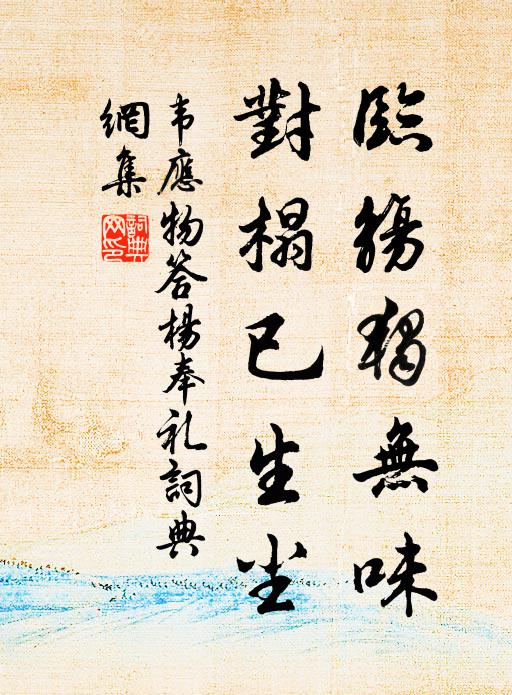 臨觴獨無味
對榻已生尘
韦應物答楊奉礼詞典
網集
詞典網印